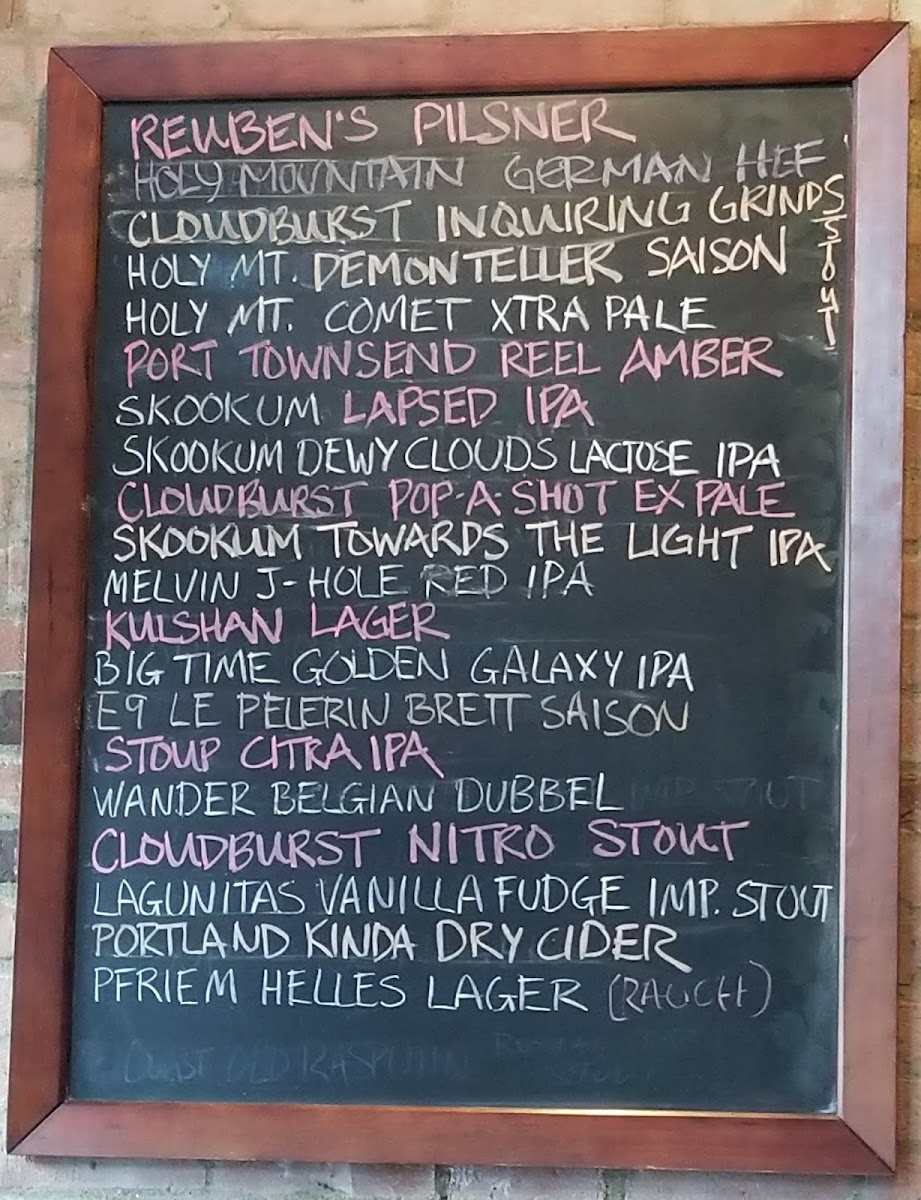 REUBEN'S PILSNER
HOLY MOUNTAIN GERMAN HEF
CLOUDBURST INQUIRING GRINDS STOUT
HOLY MT. DEMON TELLER SAISON
HOLY MT. COMET XTRA PALE
PORT TOWNSEND REEL AMBER
SKOOKUM LAPSED IPA
SKOOKUM DEWY CLOUDS LACTOSE IPA
CLOUDBURST POP-A-SHOT EX PALE
SKOOKUM TOWARDS THE LIGHT IPA
MELVIN J-HOLE RED IPA
KULSHAN LAGER
BIG TIME GOLDEN GALAXY IPA
E9 LE PELERIN BRETT SAISON
STOUP CITRA IPA
WANDER BELGIAN DUBBEL IMP STOUT
CLOUDBURST NITRO STOUT
LAGUNITAS VANILLA FUDGE IMP. STOUT
PORTLAND KINDA DRY CIDER
PFRIEM HELLES LAGER (RAUCH)
COAST OLD RASPUTIN